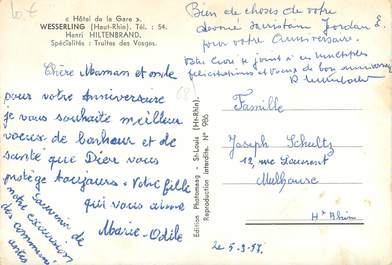 10 €
« Hôtel de la Gare »
WESSERLING (Haut-Rhin). Tél. : 54.
Henri HILTENBRAND.
Spécialités : Truites des Vosges.
Bien de choses de votre
dévoué sacristain Jordan E.
pour votre anniversaire.
Votre Curé se joint à
félicitations et vœux de bon anniversaire
Chère Maman et
pour votre Anniversaire
je vous souhaite meilleur
voeux de bonheur et de
santé que Dieu vous
protège toujours. Votre fille
qui vous aime
Marie-Odile
Souvenir de
notre excursion
des
Edition Photomag - St-Louis (Ht-Rhin).
Reproduction interdite. N° 986
Famille
Joseph Schultz
12, rue Laurent
Mulhouse
Ht Rhin
le 5.9.57.